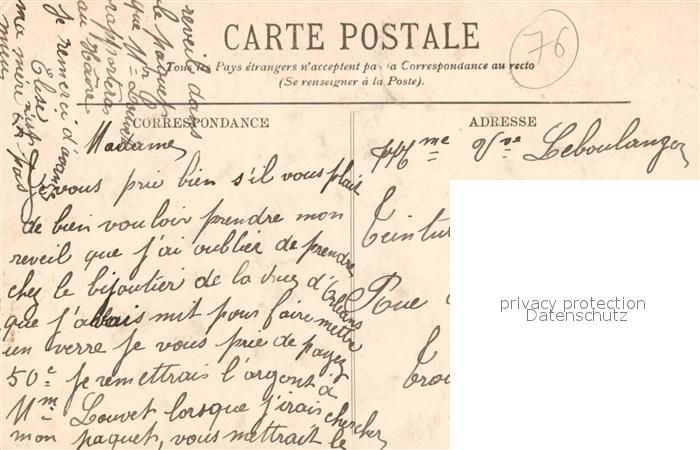 CARTE POSTALE
76
Tous les Pays étrangers n'acceptent pas la Correspondance au recto
(Se renseigner à la Poste).
CORRESPONDANCE
ADRESSE
Madame
Je vous prie bien s'il vous plait
de bien vouloir prendre mon
reveil que j'ai oublier de prendre
chez le bijoutier de la rue d'Orleans
que j'allais mit pour faire mettre
un verre je vous prie de payez
50c Je remettrais l'argent à
Mme Louvet lorsque j'irais chercher
mon paquet, vous mettrait le
reveil dans
le paquet
que Mme Louvet
rapportera
au Hâvre
Je remerci d'avance
Elise
ma mère n'est pas
mieux
Mme Vve Leboulanger
Teintu
Rue
Trou
privacy protection
Datenschutz